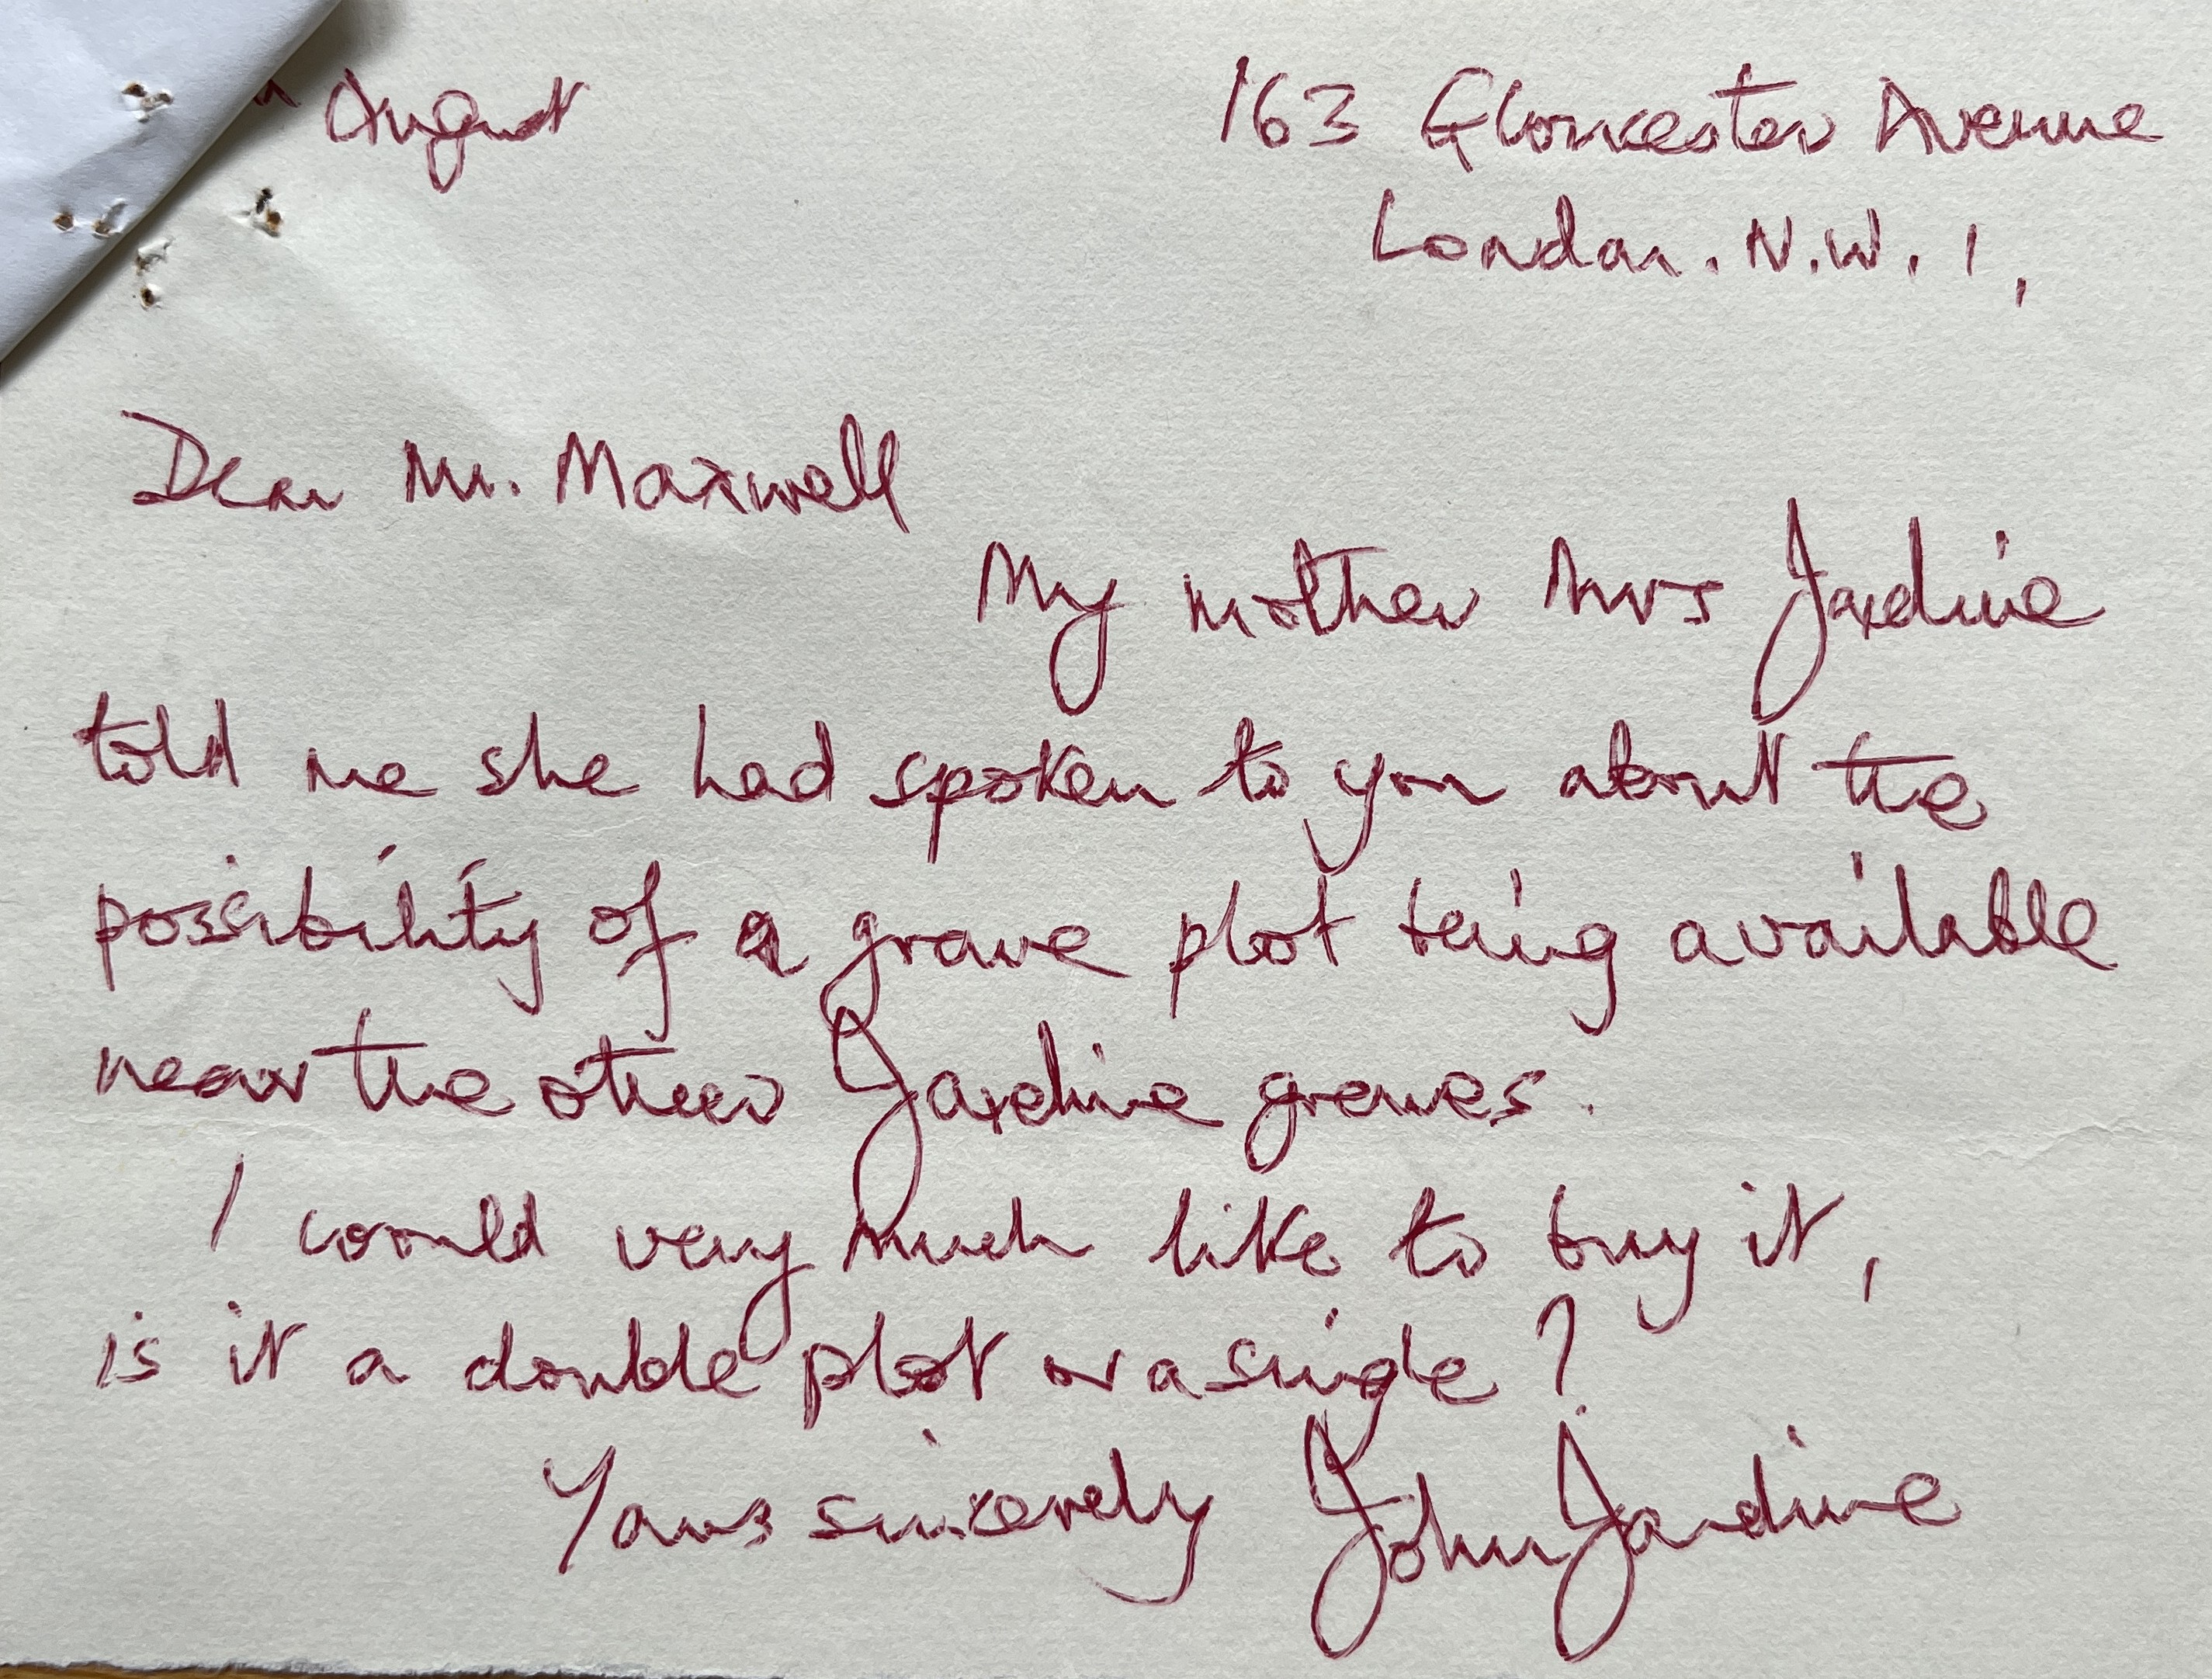 August
163 Gloucester Avenue
London. N.W. 1,
Dear Mr. Maxwell
My mother Mrs Jardine
told me she had spoken to you about the
possibility of a grave plot being available
near the other Jardine graves.
I would very much like to buy it,
is it a double plot or a single?
Yours sincerely John Jardine